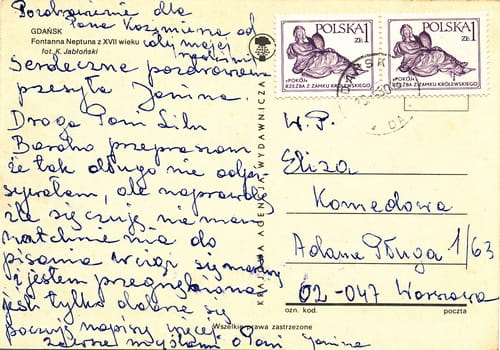 Pozdrowienie dla
Pana Kazimierza od
całej mojej
rodziny
GDAŃSK
Fontanna Neptuna z XVII wieku
fot. K. Jabłoński
Serdeczne pozdrowienia
przesyła Janina.
Droga Pani
Bardzo przepraszam
że tak długo nie odpi
sywałam, ale naprawdę
źle się czuję, nie mam
natchnienia do
pisania wciąż się
i jestem przygnębiona
jeśli tylko dobrze się
poczuję napiszę więcej
zawsze myślami o Pani Janina
KRAJOWA AGENCJA WYDAWNICZA
POLSKA
ZŁ 1
«POKÓJ»
RZEŹBA Z ZAMKU KRÓLEWSKIEGO
POLSKA
ZŁ 1
«POKÓJ»
RZEŹBA Z ZAMKU KRÓLEWSKIEGO
W.P.
Eliza
Komedowa
Adama Pługa 1/63
02-047 Warszawa
ozn. kod.
poczta
Wszelkie prawa zastrzeżone